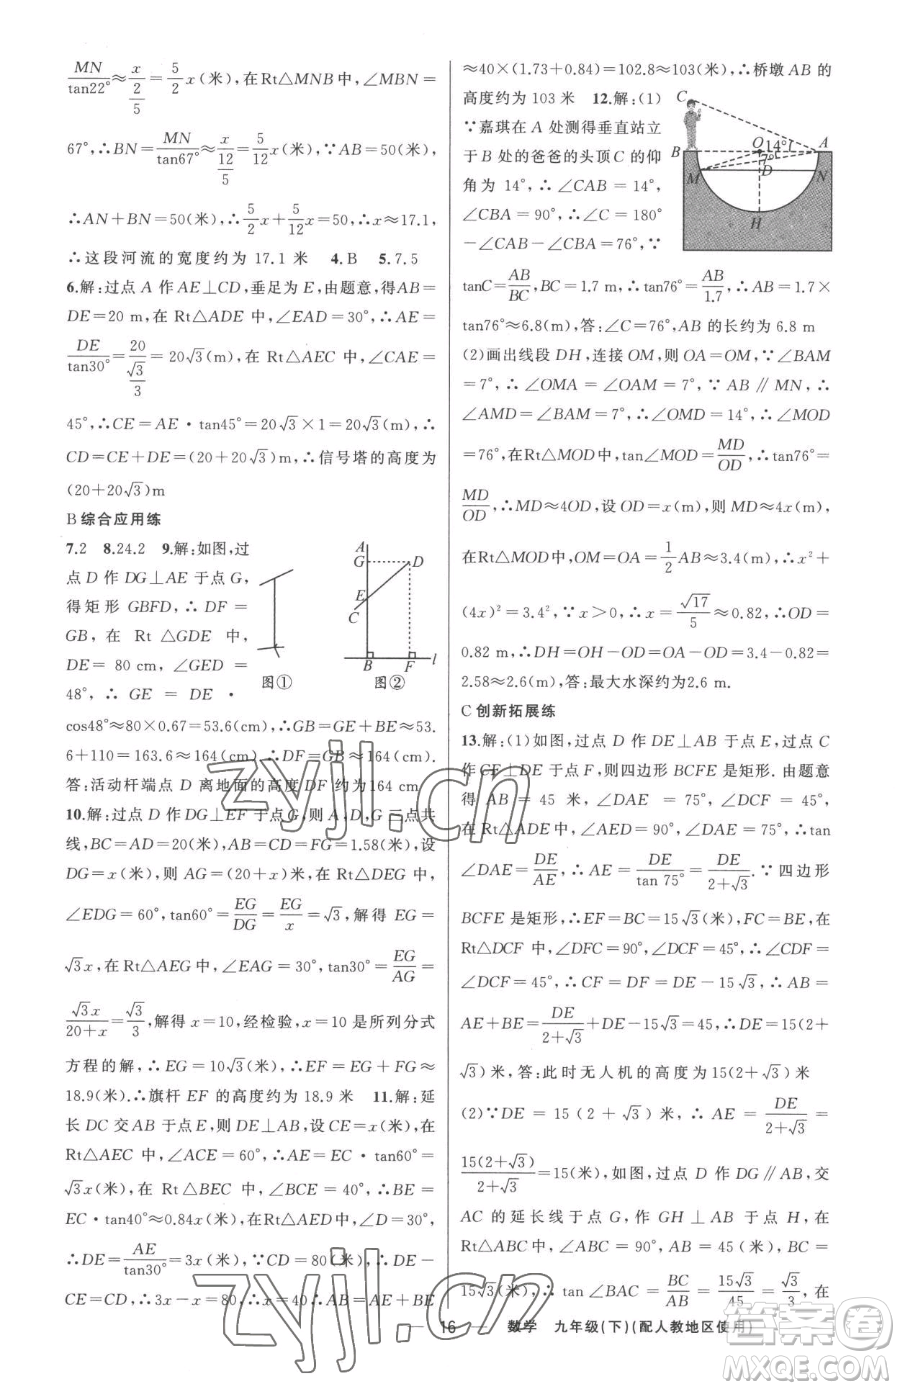 MN/tan22°≈x/(2/5)=5/2x(米),在Rt△MNB中,∠MBN=
67°,∴BN=MN/tan67°≈x/(12/5)=5/12x(米),∵AB=50(米),
∴AN+BN=50(米),∴5/2x+5/12x=50,∴x≈17.1,
∴这段河流的宽度约为17.1米 4.B 5.7.5
6.解:过点A作AE⊥CD,垂足为E,由题意,得AB=
DE=20 m,在Rt△ADE中,∠EAD=30°,∴AE=
DE/tan30°=20/(√3/3)=20√3(米),在Rt△AEC中,∠CAE=
45°,∴CE=AE·tan45°=20√3×1=20√3(米),∴
CD=CE+DE=(20+20√3)米,∴信号塔的高度为
(20+20√3)m
B 综合应用练
7.2 8.24.2 9.解:如图,过
点D作DG⊥AE于点G,
得矩形GBFD,∴DF=
GB,在Rt△GDE中,
DE=80 cm,∠GED=
48°,∴GE=DE·
A
G
D
E
C
B
F
l
图①
图②
cos48°≈80×0.67=53.6(cm),∴GB=GE+BE=53.
6+110=163.6≈164(cm).∴DF=GB≈164(cm).
答:活动杆端点D离地面的高度DF约为164 cm
10.解:过点D作DG⊥EF于点G,则A,D,G三点共
线,BC=AD=20(米),AB=CD=FG=1.58(米),设
DG=x(米),则AG=(20+x)米,在Rt△DEG中,
∠EDG=60°,tan60°=EG/DG=EG/x=√3,解得EG=
√3x,在Rt△AEG中,∠EAG=30°,tan30°=EG/AG=
√3x/(20+x)=√3/3,解得x=10,经检验,x=10是所列分式
方程的解,∴EG=10√3(米),∴EF=EG+FG≈
18.9(米).∴旗杆EF的高度约为18.9米 11.解:延
长DC交AB于点E,则DE⊥AB,设CE=x(米),在
Rt△AEC中,∠ACE=60°,∴AE=EC·tan60°=
√3x(米),在Rt△BEC中,∠BCE=40°,∴BE=
EC·tan40°≈0.84x(米),在Rt△AED中,∠D=30°,
∴DE=AE/tan30°=3x(米),∵CD=80(米),∴DE-
CE=CD,∴3x-x=80,∴x=40∴AB=AE+BE
≈40×(1.73+0.84)=102.8≈103(米),∴桥墩AB的
高度约为103米 12.解:(1)
∵嘉琪在A处测得垂直站立
于B处的爸爸的头顶C的仰
角为14°,∴∠CAB=14°,
∠CBA=90°,∴∠C=180°
-∠CAB-∠CBA=76°,∵
C
B
O
14°
A
7°
M
D
N
H
tanC=AB/BC,BC=1.7 m,tan76°=AB/1.7,∴AB=1.7×
tan76°≈6.8(m),答:∠C=76°,AB的长约为6.8 m
(2)画出线段DH,连接OM,则OA=OM,∵∠BAM
=7°,∴∠OMA=∠OAM=7°,∵AB∥MN,∴
∠AMD=∠BAM=7°,∴∠OMD=14°,∴∠MOD
=76°,在Rt△MOD中,∵tan∠MOD=MD/OD,∴tan76°=
MD/OD,∴MD≈4OD,设OD=x(m),则MD≈4x(m),
在Rt△MOD中,OM=OA=1/2AB≈3.4(m),∴x²+
(4x)²=3.4²,∵x>0,∴x=√17/5≈0.82,∴OD=
0.82 m,∴DH=OH-OD=OA-OD≈3.4-0.82=
2.58≈2.6(m),答:最大水深约为2.6 m.
C 创新拓展练
13.解:(1)如图,过点D作DE⊥AB于点E,过点C
作CF⊥DE于点F,则四边形BCFE是矩形.由题意
得AB=45米,∠DAE=75°,∠DCF=45°,
在Rt△ADE中,∠AED=90°,∠DAE=75°,∴tan
∠DAE=DE/AE,∴AE=DE/tan 75°=DE/(2+√3).∵四边形
BCFE是矩形,∴EF=BC=15√3(米),FC=BE,在
Rt△DCF中,∠DFC=90°,∠DCF=45°,∴∠CDF=
∠DCF=45°,∴CF=DF=DE-15√3(米),∴AB=
AE+BE=DE/(2+√3)+DE-15√3=45,∴DE=15(2+
√3)米,答:此时无人机的高度为15(2+√3)米
(2)∵DE=15(2+√3)(米),∴AE=DE/(2+√3)=
15(2+√3)/(2+√3)=15(米),如图,过点D作DG∥AB,交
AC的延长线于点G,作GH⊥AB于点H,在
Rt△ABC中,∠ABC=90°,AB=45(米),BC=
15√3(米),∴tan∠BAC=BC/AB=15√3/45=√3/3,∴在
16 数学 九年级(下)(配人教地区使用)
zyjl.cn
zyjl.cn
答案圈
MXQE.COM